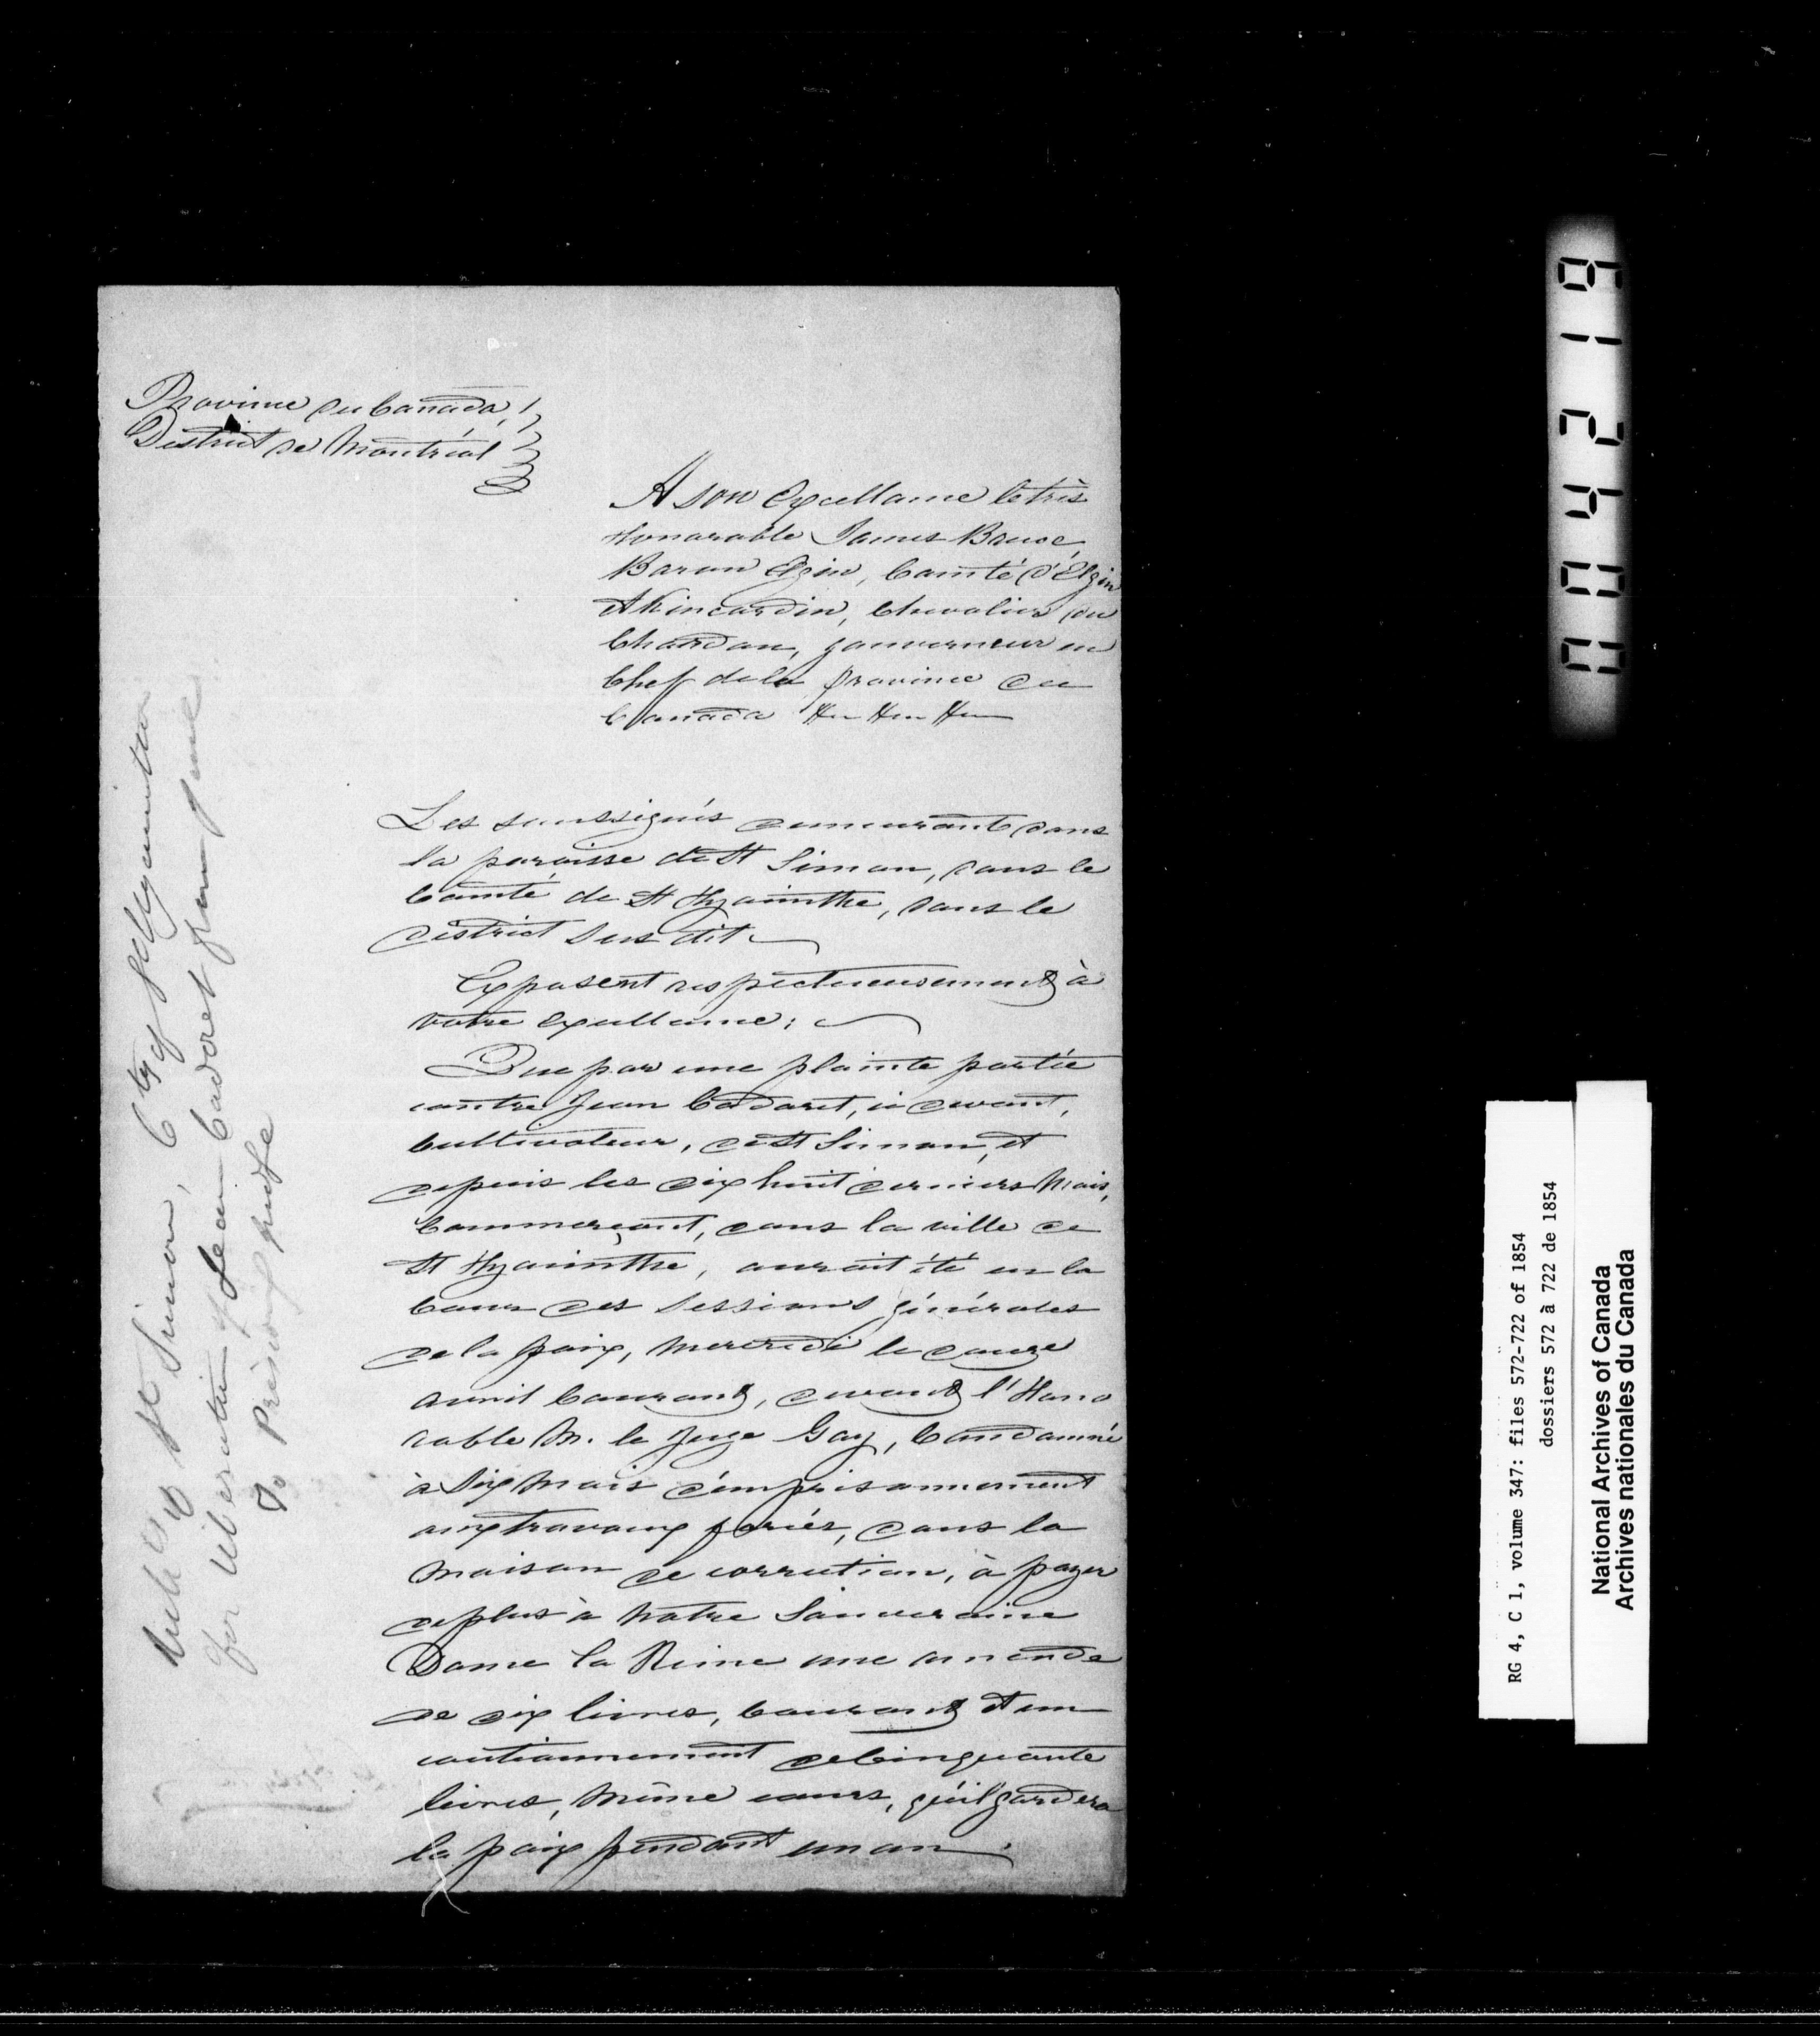 Province du Canada,
District de Montréal
A son Excellance le très
Honorable James Bruce
Baron Elgin, Comté d'Elgin
et Kincardin, Chevalier du
Chardon, gouverneur en
Chef de la province du
Canada &c &c &c
Les soussignés demeurants dans
la paroisse de St Simon, dans le
Comté de St Hyacinthe, dans le
district sus dit
Exposent respectueusement à
votre Excellance:
Que par une plainte portée
contre Jean Cadoret, ci devant,
Cultivateur, de St Simon, et
depuis les dix huit derniers Mois,
Commerçant, dans la ville de
St Hyacinthe, aurait été en la
Cour des Sessions générales
de la paix, Mercredi le douze
avril Courant, devant l'Hono
rable M. le Juge Guy, Condamné
à Six Mois d'emprisonnement
aux travaux forcés, dans la
Maison de correction, à payer
de plus à Notre Souveraine
Dame la Reine une amende
de dix livres, Courant et un
cautionnement de Cinquante
livres, même cours, qu'il gardera
la paix pendant un an.
Inhts of St Simon, Cty of St Hyacinthe
for liberation of Jean Cadoret from Jail
RG 4, C 1, volume 347: files 572-722 of 1854
dossiers 572 à 722 de 1854
National Archives of Canada
Archives nationales du Canada